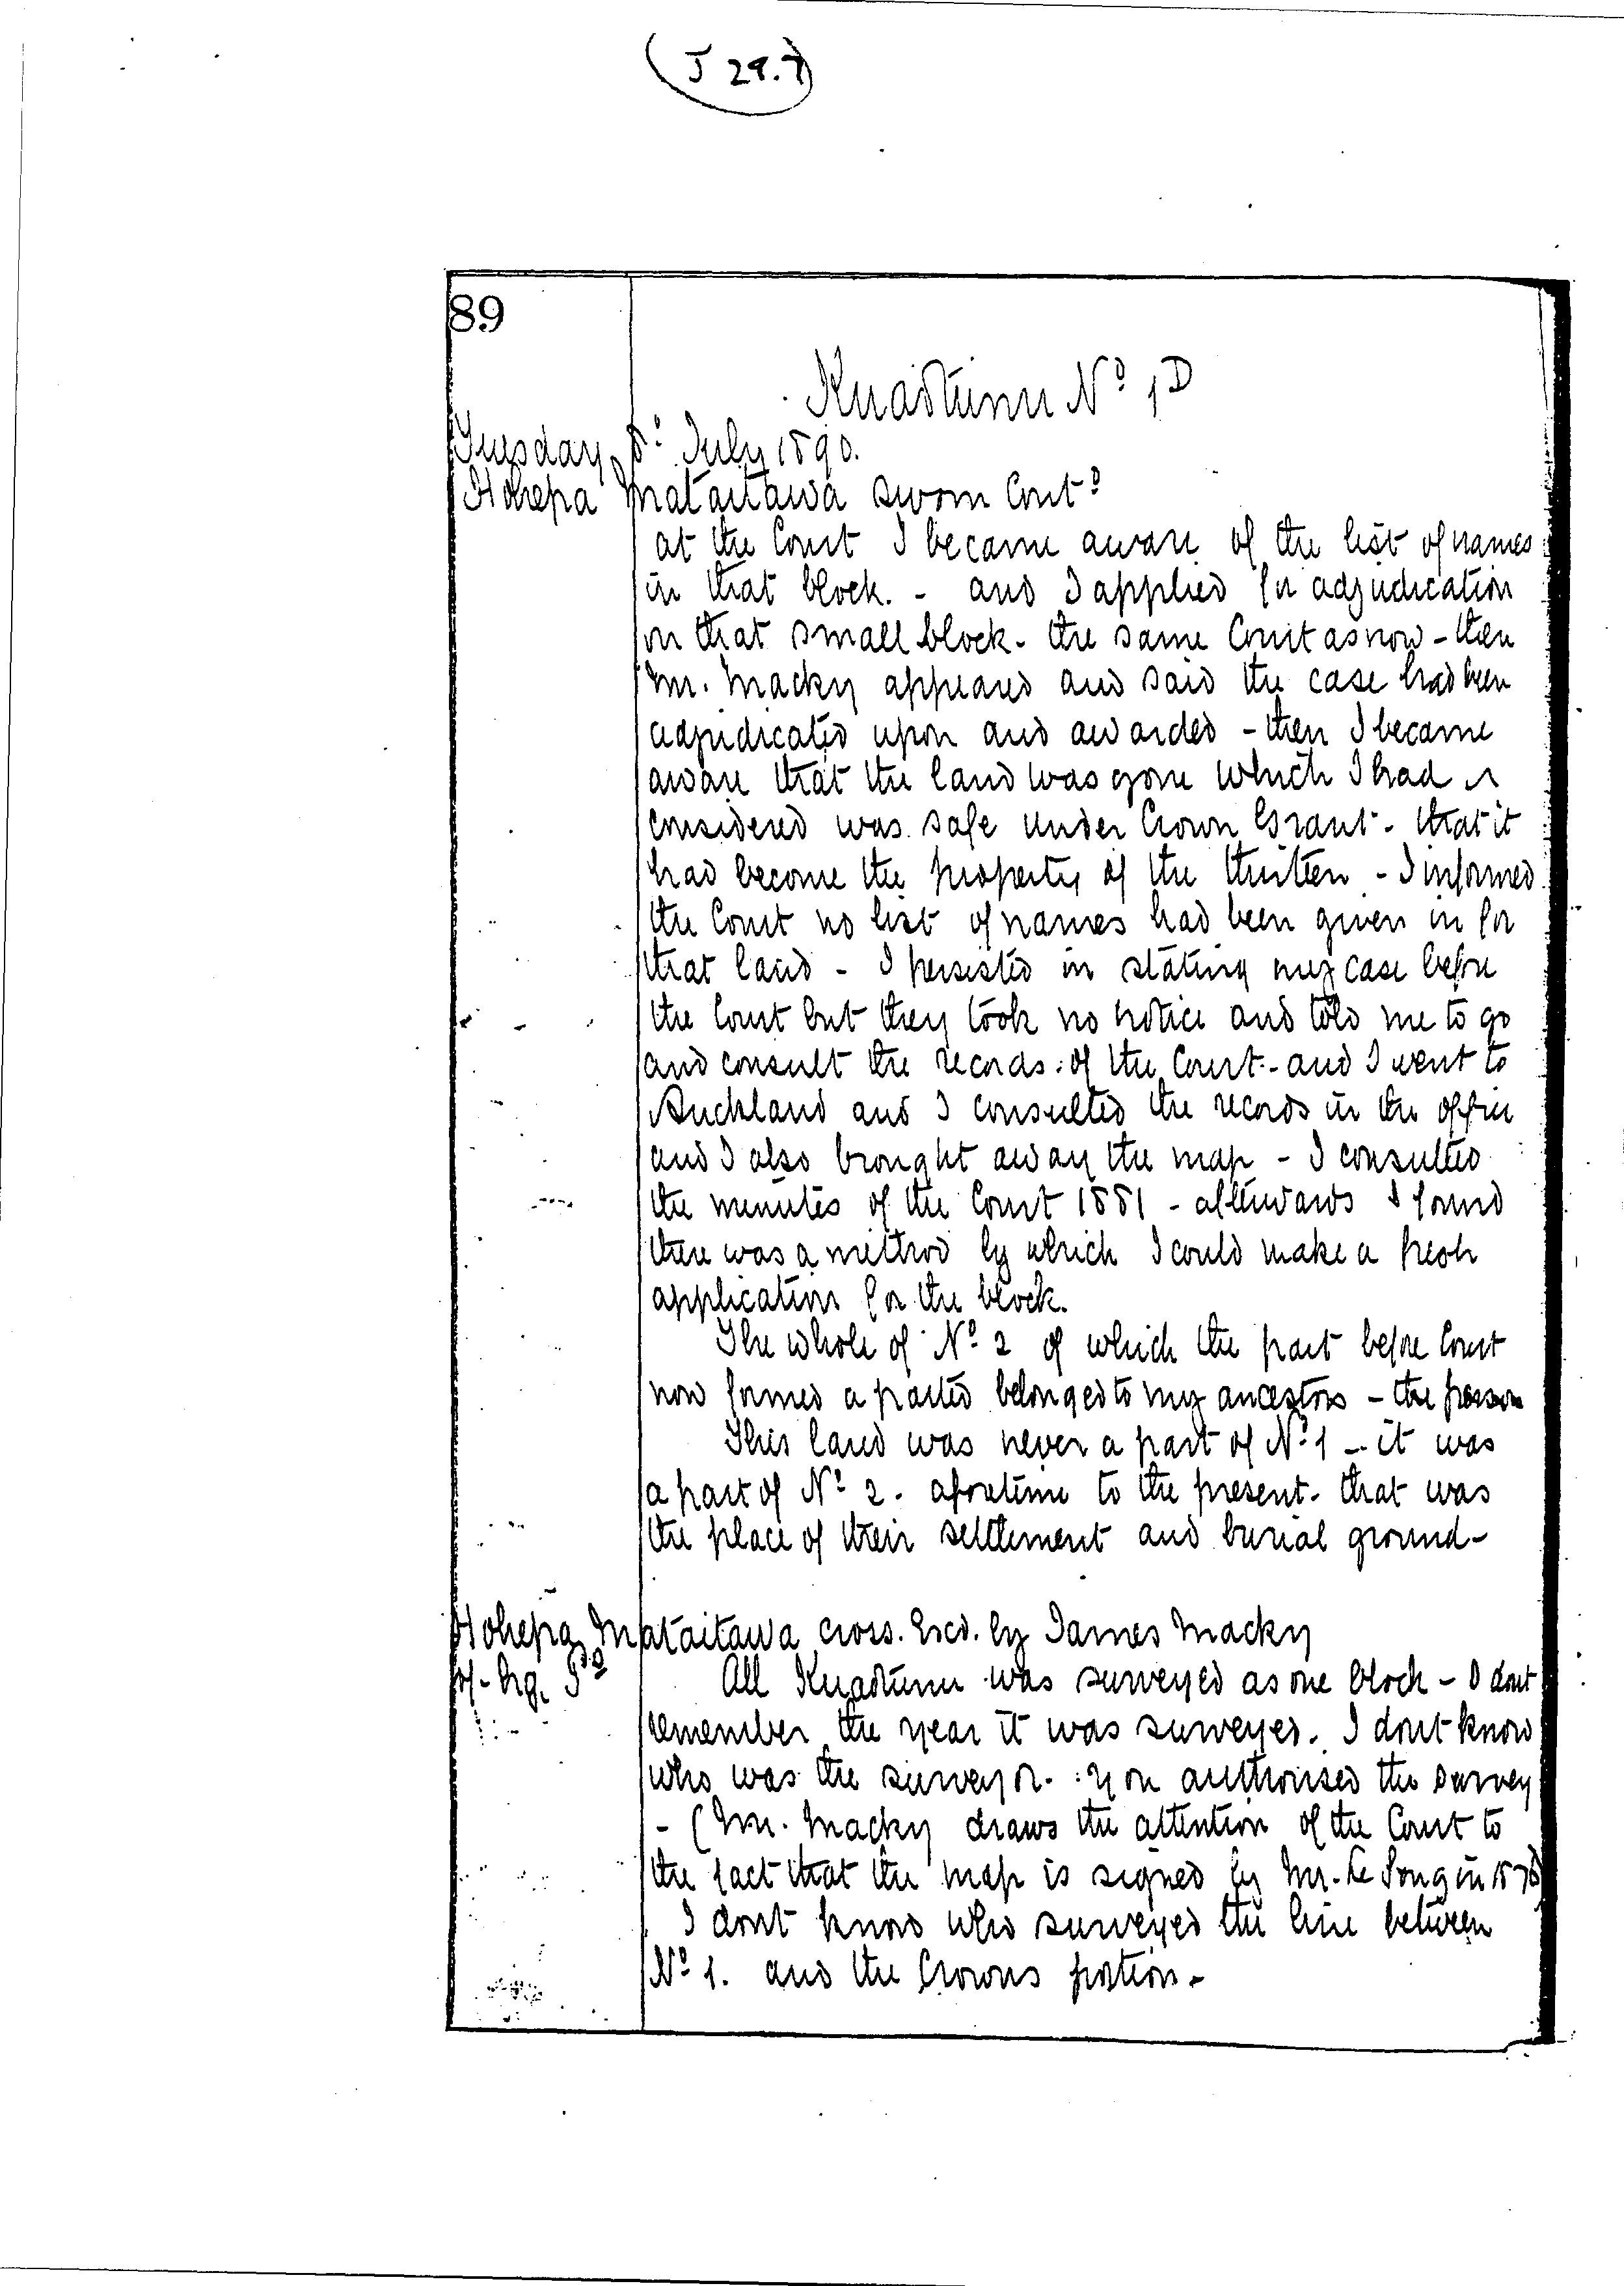 (J 29.7)
89
Kuaotunu No 1D
Tuesday, 8: July 1890.
Hohepa Mataitawa sworn Contd
at the Court I became aware of the list of names
in that block. - and I applied for adjudication
on that small block - the same Court as now - then
Mr. Macky appeared and said the case had been
adjudicated upon and awarded - then I became
aware that the land was gone which I had
considered was safe under Crown Grant - that it
had become the property of the thirteen - I informed
the Court no list of names had been given in for
that land - I persisted in stating my case before
the Court but they took no notice and told me to go
and consult the records of the Court - and I went to
Auckland and I consulted the records in the office
and I also brought away the map - I consulted
the minutes of the Court 1881 - afterwards I found
there was a method by which I could make a fresh
application for the block.
The whole of No 2 of which the part before Court
now formed a parted belonged to my ancestors - the
This land was never a part of No 1 - it was
a part of No 2. aforetime to the present. that was
the place of their settlement and burial ground -
Hohepa Mataitawa cross. Exd. by James Macky
All Kuaotunu was surveyed as one block - I dont
remember the year it was surveyed. I dont know
who was the surveyor. you authorised the survey
- (Mr. Macky draws the attention of the Court to
the fact that the map is signed by Mr. Le Song in 1878
I dont know who surveyed the line between
No 1. and the Crowns portion -